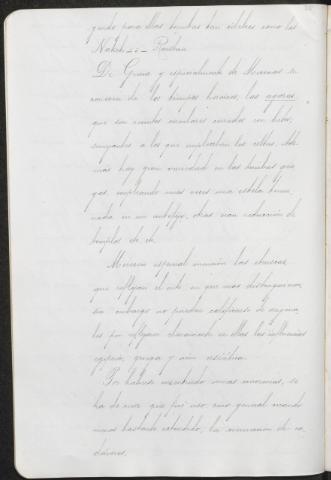 guido para ellas tumbas tan célebres como las
Naksh-i-Roustan
De Grecia y especialmente de Micenas se
conocen de los tiempos heroicos, las agoras,
que son recintos circulares cerrados con losas,
semejantes a los que empleaban los celtas. Ade-
más hay gran variedad en las tumbas grie-
gas, empleando unas veces una estela termi-
nada en un antefija, otras una reducción de
templos etc. etc.
Mención especial merecen las etruscas
que reflejan el arte en que más distinguieron,
sin embargo no pueden calificarse de origina-
les por reflejar claramente en ellas las influencias
egipcia, griega y aún asiática.
Por haberse encontrado varias necrópolis, se
ha de creer que fué uso, sino general cuando
menos bastante extendido, la incineración de ca-
dáveres.